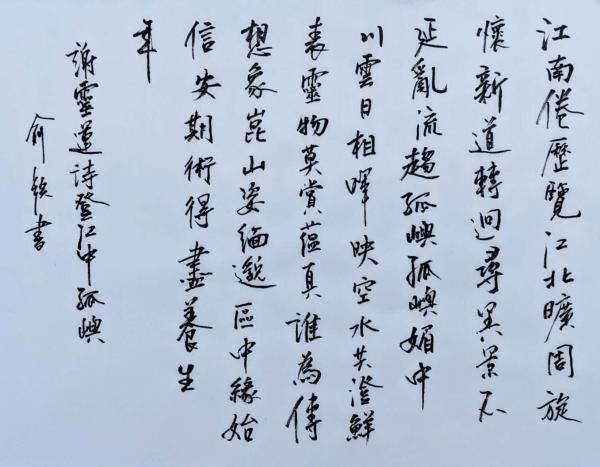 江南倦歷覽江北曠周旋
懷新道轉迥尋異景不
延亂流趨孤嶼孤嶼媚中
川雲日相暉映空水共澄鮮
表靈物莫賞蘊真誰為傳
想象崑山姿緬邈區中緣始
信安期術得盡養生
年
謝靈運詩登江中孤嶼
俞 書